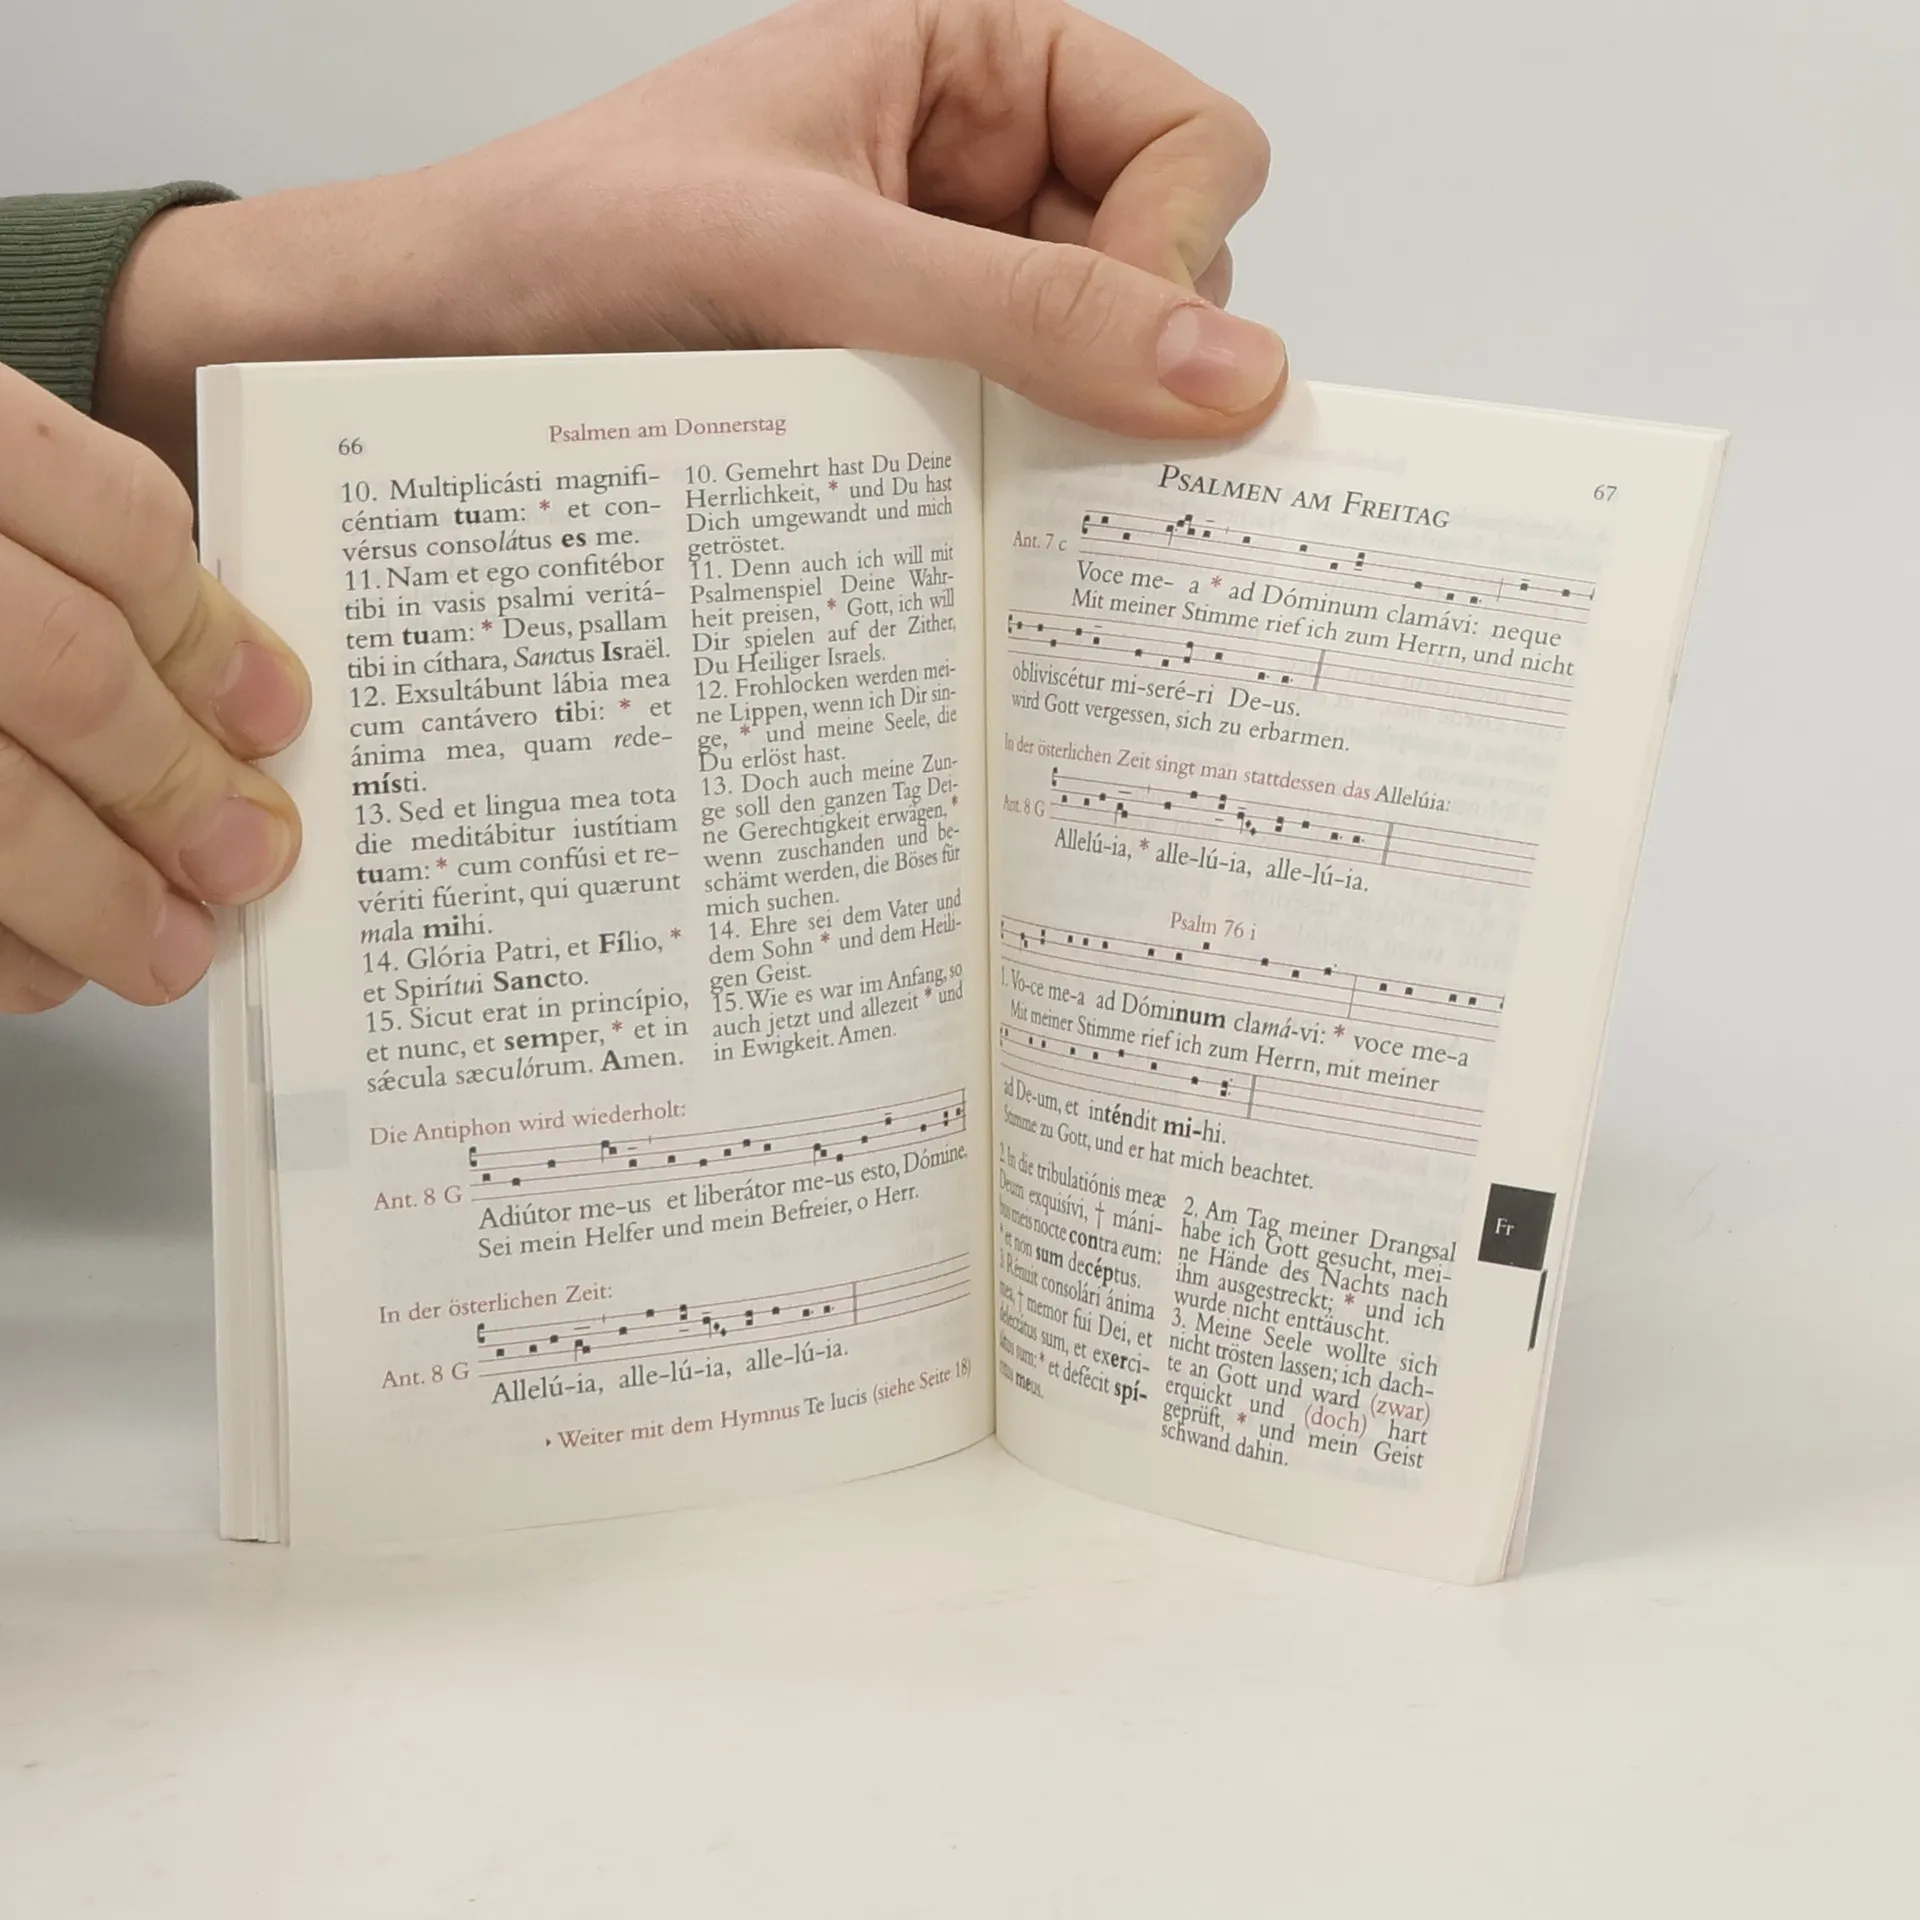 66
Psalmen am Donnerstag
10. Multiplicásti magnifi-
céntiam tuam: * et con-
vérsus consolátus es me.
11. Nam et ego confitébor
tibi in vasis psalmi veritá-
tem tuam: * Deus, psallam
tibi in cíthara, Sanctus Israël.
12. Exsultábunt lábia mea
cum cantávero tibi: * et
ánima mea, quam rede-
místi.
13. Sed et lingua mea tota
die meditábitur iustítiam
tuam: * cum confúsi et re-
vériti fúerint, qui quærunt
mala mihi.
14. Glória Patri, et Fílio, *
et Spirítui Sancto.
15. Sicut erat in princípio,
et nunc, et semper, * et in
sǽcula sæculórum. Amen.
10. Gemehrt hast Du Deine
Herrlichkeit, * und Du hast
Dich umgewandt und mich
getröstet.
11. Denn auch ich will mit
Psalmenspiel Deine Wahr-
heit preisen, * Gott, ich will
Dir spielen auf der Zither,
Du Heiliger Israels.
12. Frohlocken werden mei-
ne Lippen, wenn ich Dir sin-
ge, * und meine Seele, die
Du erlöst hast.
13. Doch auch meine Zun-
ge soll den ganzen Tag Dei-
ne Gerechtigkeit erwägen, *
wenn zuschanden und be-
schämt werden, die Böses für
mich suchen.
14. Ehre sei dem Vater und
dem Sohn * und dem Heili-
gen Geist.
15. Wie es war im Anfang, so
auch jetzt und allezeit * und
in Ewigkeit. Amen.
Die Antiphon wird wiederholt:
Ant. 8 G
Adiútor me-us et liberátor me-us esto, Dómine.
Sei mein Helfer und mein Befreier, o Herr.
In der österlichen Zeit:
Ant. 8 G
Allelú-ia, alle-lú-ia, alle-lú-ia.
Weiter mit dem Hymnus Te lucis (siehe Seite 18)
PSALMEN AM FREITAG
67
Ant. 7 c
Voce me- a * ad Dóminum clamávi: neque
Mit meiner Stimme rief ich zum Herrn, und nicht
obliviscétur mi-seré-ri De-us.
wird Gott vergessen, sich zu erbarmen.
In der österlichen Zeit singt man stattdessen das Allelúia:
Ant. 8 G
Allelú-ia, * alle-lú-ia, alle-lú-ia.
Psalm 76 i
1. Vo-ce me-a ad Dóminum clamá-vi: * voce me-a
Mit meiner Stimme rief ich zum Herrn, mit meiner
ad De-um, et inténdit mi-hi.
Stimme zu Gott, und er hat mich beachtet.
2. In die tribulatiónis meæ
Deum exquisívi, † máni-
bus meis nocte contra eum:
* et non sum decéptus.
3. Rénuit consolári ánima
mea, † memor fui Dei, et
delectátus sum, et exerci-
tátus sum: * et defécit spí-
ritus meus.
2. Am Tag meiner Drangsal
habe ich Gott gesucht, mei-
ne Hände des Nachts nach
ihm ausgestreckt; * und ich
wurde nicht enttäuscht.
3. Meine Seele wollte sich
nicht trösten lassen; ich dach-
te an Gott und ward (zwar)
erquickt und (doch) hart
geprüft, * und mein Geist
schwand dahin.
Fr